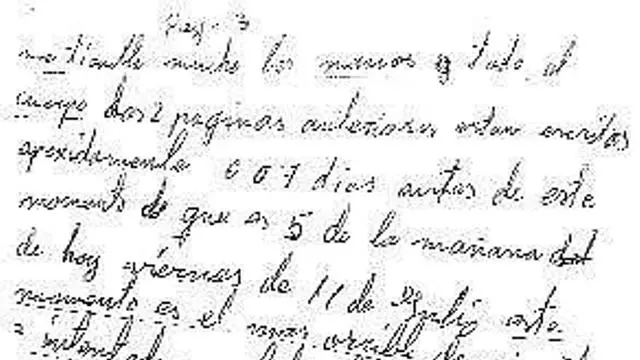 Pag. 3
me tiemble mucho las manos y todo el
cuerpo las 2 paginas anteriores estan escritas
apoxidamente 6 o 7 dias antes de este
momento de que es 5 de la mañana del
de hoy viernes de 11 de Julio este
momento es el mas orrible de
2 intentado